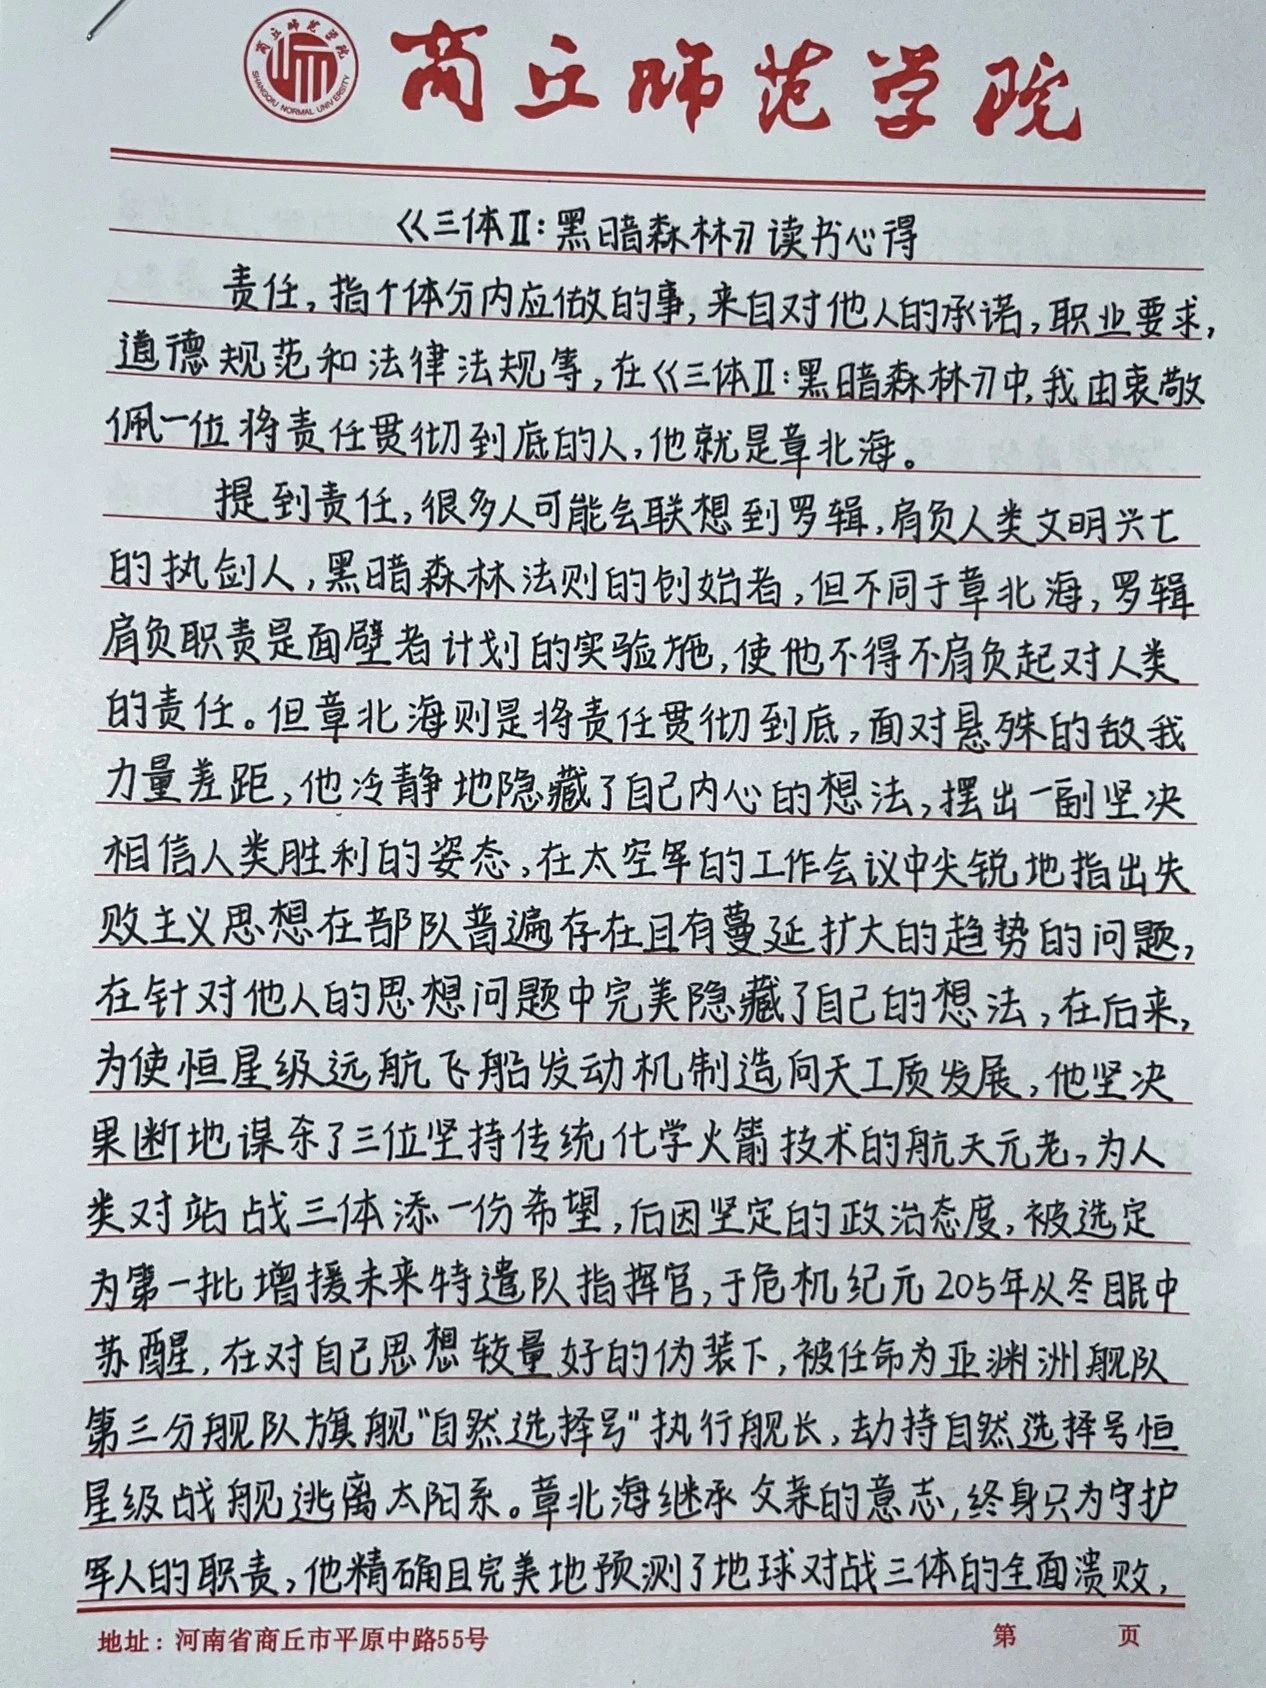 商丘师范学院
SHANGQIU NORMAL UNIVERSITY
《三体Ⅱ:黑暗森林》读书心得
责任,指个体分内应做的事,来自对他人的承诺,职业要求,
道德规范和法律法规等,在《三体Ⅱ:黑暗森林》中,我由衷敬
佩一位将责任贯彻到底的人,他就是章北海。
提到责任,很多人可能会联想到罗辑,肩负人类文明兴亡
的执剑人,黑暗森林法则的创始者,但不同于章北海,罗辑
肩负职责是面壁者计划的实验施,使他不得不肩负起对人类
的责任。但章北海则是将责任贯彻到底,面对悬殊的敌我
力量差距,他冷静地隐藏了自己内心的想法,摆出一副坚决
相信人类胜利的姿态,在太空军的工作会议中尖锐地指出失
败主义思想在部队普遍存在且有蔓延扩大的趋势的问题,
在针对他人的思想问题中完美隐藏了自己的想法,在后来,
为使恒星级远航飞船发动机制造向天工质发展,他坚决
果断地谋杀了三位坚持传统化学火箭技术的航天元老,为人
类对站战三体添一份希望,后因坚定的政治态度,被选定
为第一批增援未来特遣队指挥官,于危机纪元205年从冬眠中
苏醒,在对自己思想较量好的伪装下,被任命为亚渊洲舰队
第三分舰队旗舰"自然选择号"执行舰长,劫持自然选择号恒
星级战舰逃离太阳系。章北海继承父亲的意志,终身只为守护
军人的职责,他精确且完美地预测了地球对战三体的全面溃败,
地址:河南省商丘市平原中路55号
第 页